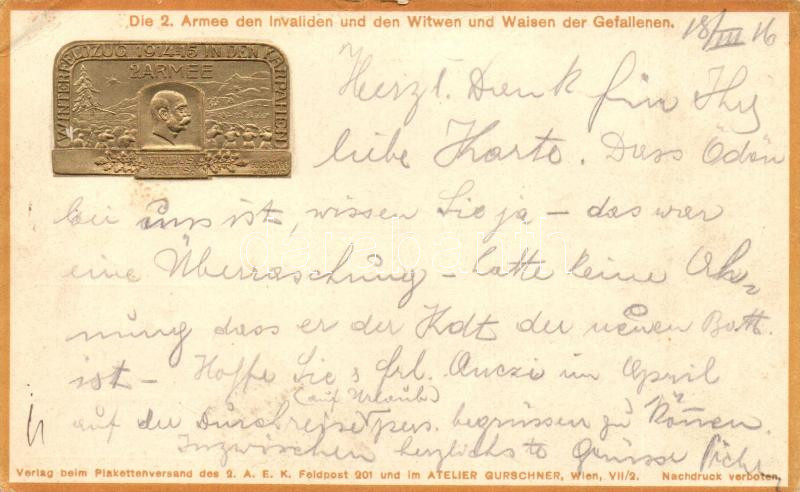 Die 2. Armee den Invaliden und den Witwen und Waisen der Gefallenen.
18/III 16
WINTERFELDZUG 1914-15 IN DEN KARPATHEN
2. ARMEE
Herzl. Dank für Ihre
liebe Karte. Dass Ödön
bei uns ist, wissen Sie ja – das war
eine Überraschung – hatte keine Ah=
nung dass er der Kdt der neuen Batt.
ist – Hoffe Sie & Frl. Anczi im April
(auf Urlaub)
auf der Durchreise pers. begrüssen zu können.
Inzwischen herzlichste Grüsse
Verlag beim Plakettenversand des 2. A. E. K. Feldpost 201 und im ATELIER GURSCHNER, Wien, VII/2. Nachdruck verboten.